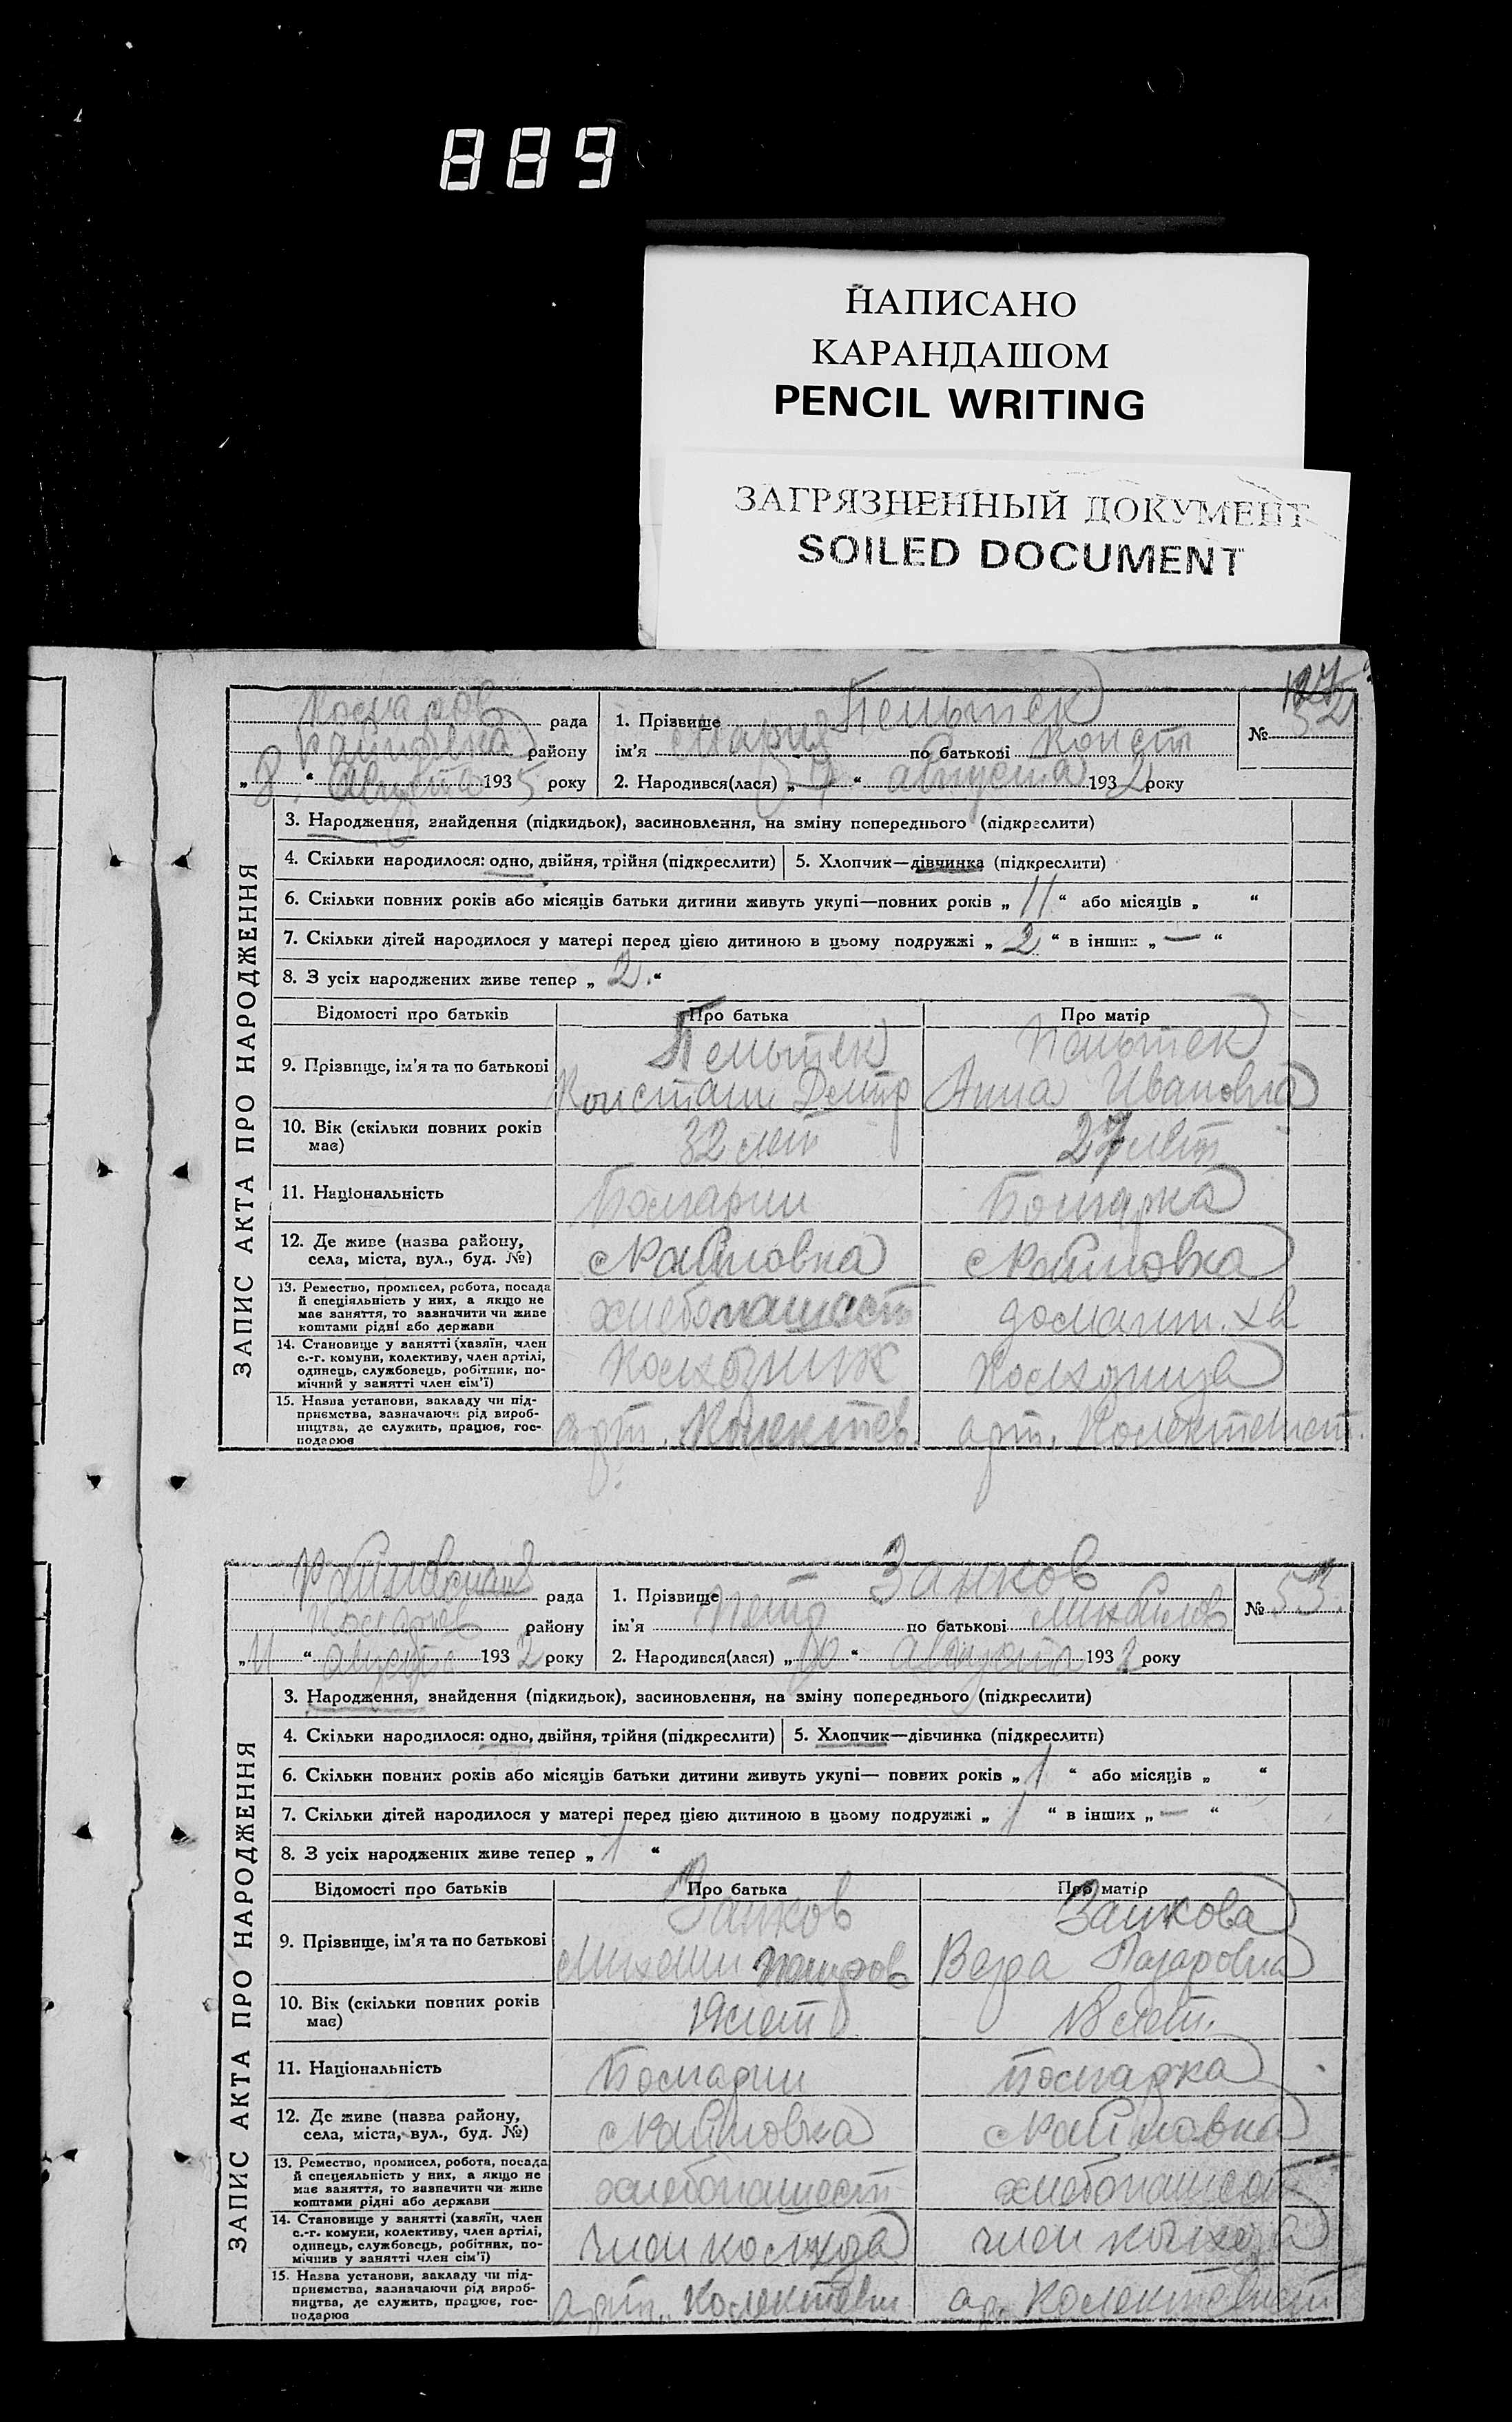 889
НАПИСАНО
КАРАНДАШОМ
PENCIL WRITING
ЗАГРЯЗНЕННЫЙ ДОКУМЕНТ
SOILED DOCUMENT
127
рада
1. Прізвище Пельтек
№ 52
району
ім'я Мария по батькові Конст
„ 8 “ Августа 1935 року
2. Народився(лася) „ 7 “ августа 1932 року
ЗАПИС АКТА ПРО НАРОДЖЕННЯ
3. Народження, знайдення (підкидьок), засиновлення, на зміну попереднього (підкреслити)
4. Скільки народилося: одно, двійня, трійня (підкреслити)
5. Хлопчик—дівчинка (підкреслити)
6. Скільки повних років або місяців батьки дитини живуть укупі—повних років „ 11 “ або місяців „ “
7. Скільки дітей народилося у матері перед цією дитиною в цьому подружжі „ 2 “ в інших „ — “
8. З усіх народжених живе тепер „ 2. “
Відомості про батьків
Про батька
Про матір
9. Прізвище, ім'я та по батькові
Пельтек
Констан Дмтр
Пельтек
Анна Ивановна
10. Вік (скільки повних років
має)
32 лет
27 лет
11. Національність
Болгарин
Болгарка
12. Де живе (назва району,
села, міста, вул., буд. №)
с Райновка
с Райновка
13. Ремество, промисел, робота, посада
й спеціяльність у них, а якщо не
має заняття, то зазначити чи живе
коштами рідні або держави
хлебопашест
домашн. хв
14. Становище у занятті (хазяїн, член
с.-г. комуни, колективу, член артілі,
одинець, службовець, робітник, по-
мічний у занятті член сім'ї)
Колхозник
Колхозница
15. Назва установи, закладу чи під-
приємства, зазначаючи рід вироб-
ництва, де служить, працює, гос-
подарює
арт. Колектив.
арт.
Райновская рада
1. Прізвище Занков
№ 53.
району
ім'я Петр по батькові Михайлов
„ 11 “ августа 1932 року
2. Народився(лася) „ 10 “ Августа 1932 року
ЗАПИС АКТА ПРО НАРОДЖЕННЯ
3. Народження, знайдення (підкидьок), засиновлення, на зміну попереднього (підкреслити)
4. Скільки народилося: одно, двійня, трійня (підкреслити)
5. Хлопчик—дівчинка (підкреслити)
6. Скільки повних років або місяців батьки дитини живуть укупі— повних років „ 1 “ або місяців „ “
7. Скільки дітей народилося у матері перед цією дитиною в цьому подружжі „ 1 “ в інших „ — “
8. З усіх народжених живе тепер „ 1 “
Відомості про батьків
Про батька
Про матір
9. Прізвище, ім'я та по батькові
Занков
Михаил
Занкова
Вера Лазаровна
10. Вік (скільки повних років
має)
19 лет
18 лет.
11. Національність
Болгарин
Болгарка
12. Де живе (назва району,
села, міста, вул., буд. №)
с Райновка
с Райновка
13. Ремество, промисел, робота, посада
й спецеяльність у них, а якщо не
має заняття, то вазначити чи живе
коштами рідні або держави
хлебопашест
хлебопашест
14. Становище у занятті (хазяїн, член
с.-г. комуни, колективу, член артілі,
одинець, службовець, робітних, по-
мічнив у занятті член сім'ї)
член колхоза
член колхоза
15. Назва установи, закладу чи під-
приємства, зазначаючи рід вироб-
ництва, де служить, працює, гос-
подарює
арт.